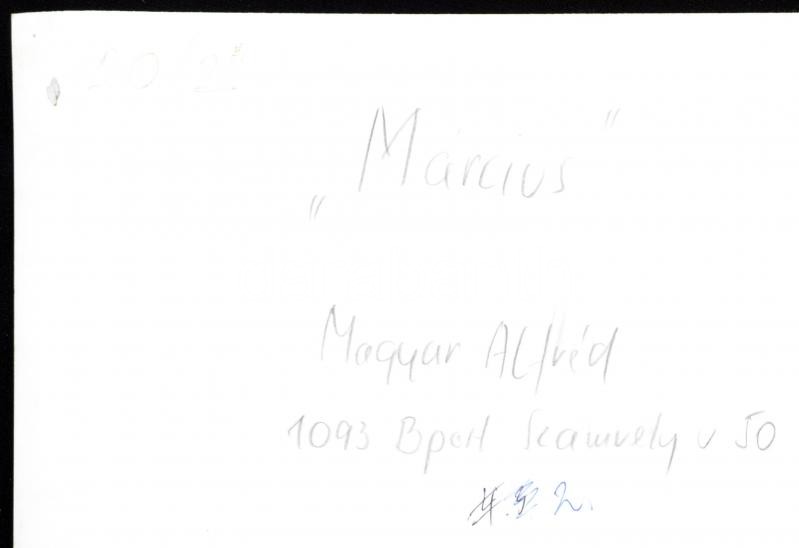 „Március"
Magyar Alfréd
1093 Bpest Szamuely u 50
2.